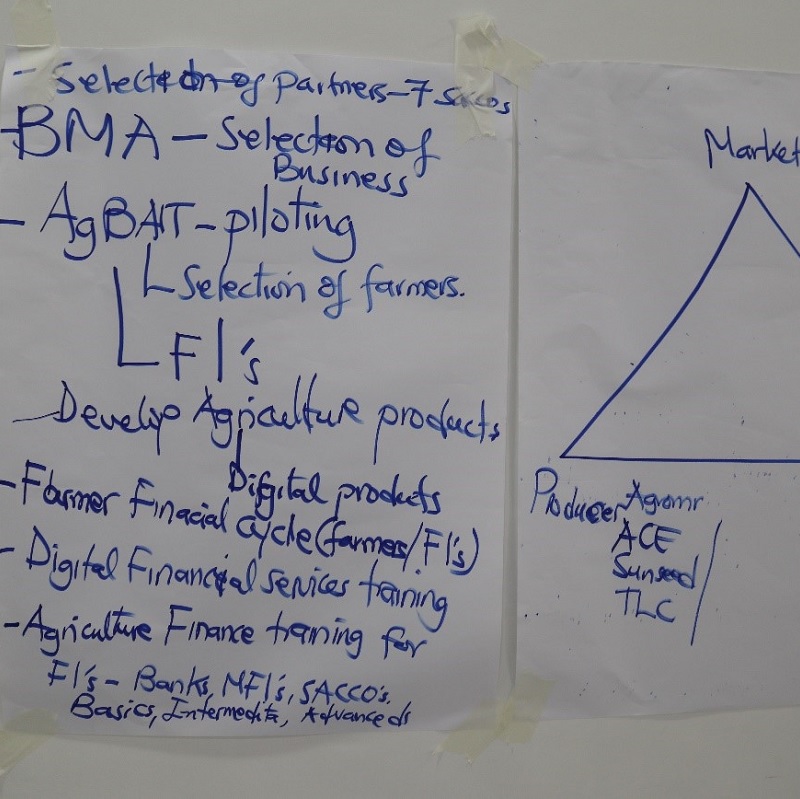 - Selection of partners - 7 Saccos
- BMA - Selection of
Business
- AgBAIT - piloting
Selection of farmers.
FI's
- Develop Agriculture products
Digital products
- Farmer Finacial cycle (farmers/FI's)
- Digital Financial services training
- Agriculture Finance training for
FI's - Banks, MFI's, SACCO's.
Basics, Intermedite, Advanced's
Market
Producer
Agromr
ACE
Sunseed
TLC